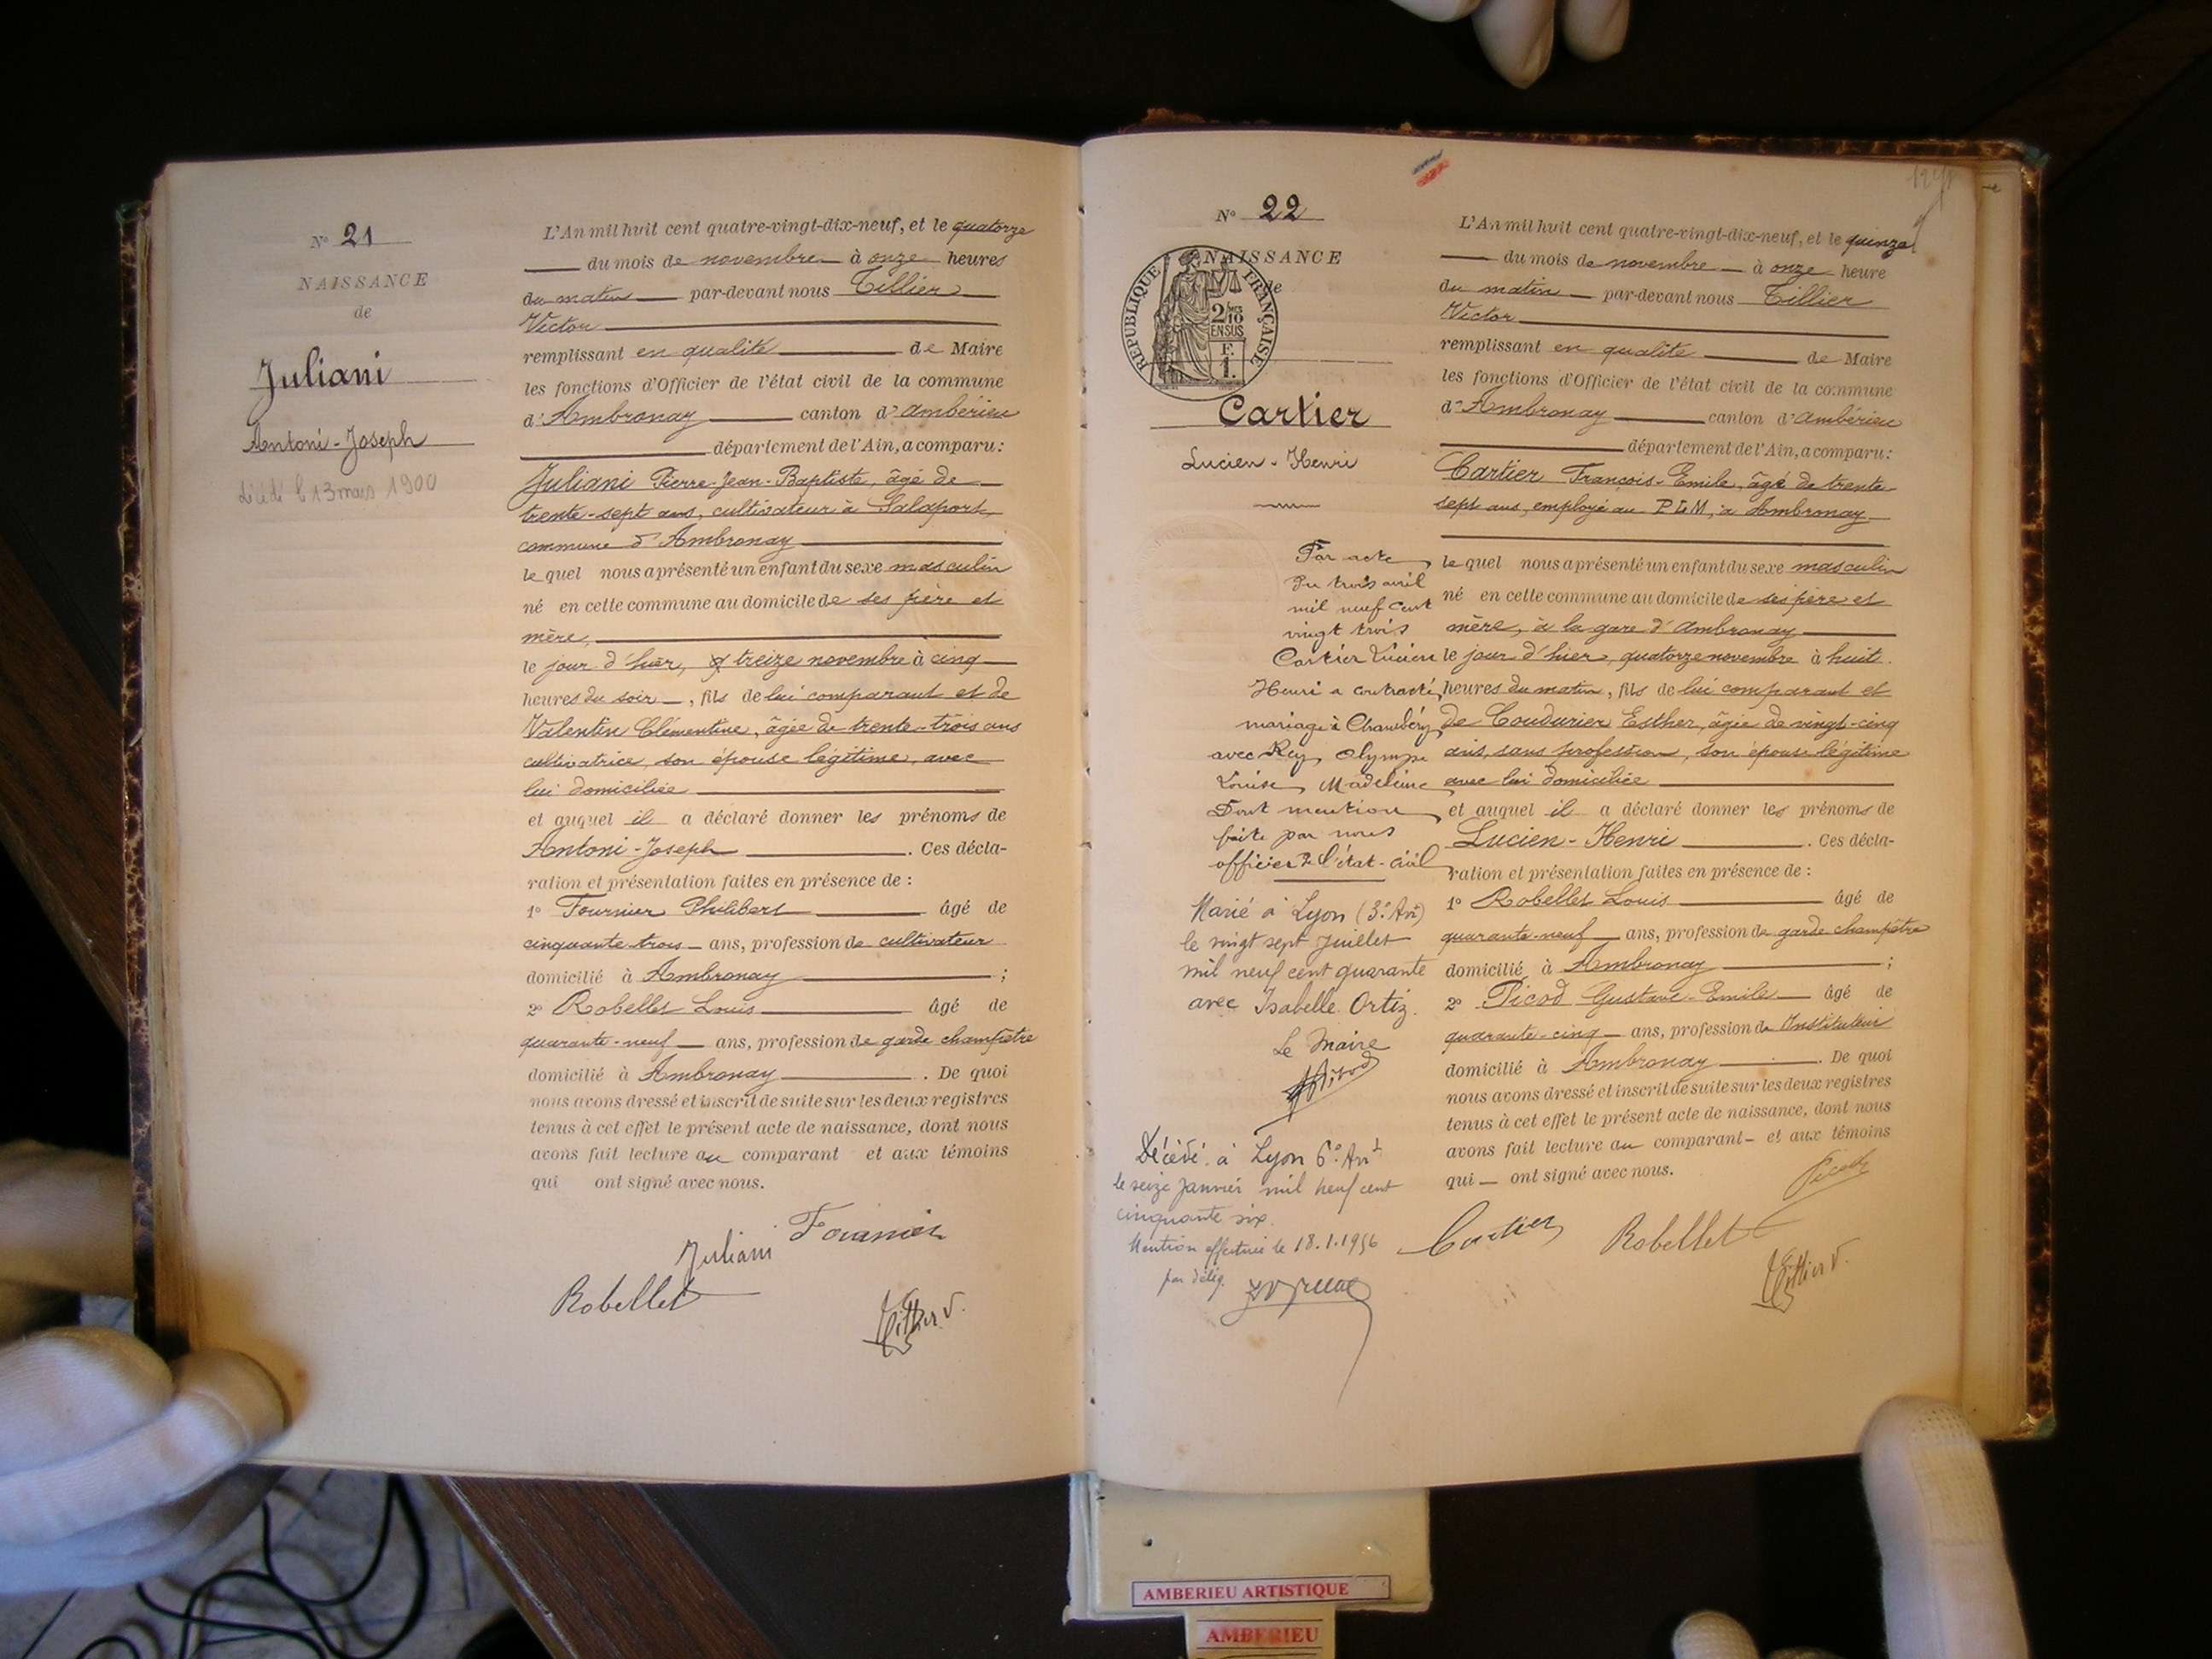 N° 21
NAISSANCE
de
Juliani
Antoni-Joseph
Décédé le 13 mars 1900
L'An mil huit cent quatre-vingt-dix-neuf, et le quatorze
du mois de novembre à onze heures
du matin par-devant nous Tillier
Victor
remplissant en qualité de Maire
les fonctions d'Officier de l'état civil de la commune
d'Ambronay canton d'Ambérieu
département de l'Ain, a comparu:
Juliani Pierre-Jean-Baptiste, âgé de
trente-sept ans, cultivateur à Salaport,
commune d'Ambronay
le quel nous a présenté un enfant du sexe masculin
né en cette commune au domicile de ses père et
mère,
le jour d'hier, treize novembre à cinq
heures du soir, fils de lui comparant et de
Valentin Clémentine, âgée de trente-trois ans
cultivatrice, son épouse légitime, avec
lui domiciliée
et auquel il a déclaré donner les prénoms de
Antoni-Joseph. Ces décla-
ration et présentation faites en présence de :
1° Fournier Philibert âgé de
cinquante-trois ans, profession de cultivateur
domicilié à Ambronay ;
2° Robellet Louis âgé de
quarante-neuf ans, profession de garde champêtre
domicilié à Ambronay. De quoi
nous avons dressé et inscrit de suite sur les deux registres
tenus à cet effet le présent acte de naissance, dont nous
avons fait lecture au comparant et aux témoins
qui ont signé avec nous.
Juliani Fournier
Robellet Tillier V.
N° 22
NAISSANCE
de
REPUBLIQUE FRANÇAISE
2/10
EN SUS
F.
1.
Cartier
Lucien-Henri
Par acte
du trois avril
mil neuf cent
vingt trois
Cartier Lucien
Henri a contracté
mariage à Chambéry
avec Rey Olympe
Louise Madeleine
Dont mention
faite par nous
officier de l'état-civil
Marié à Lyon (3e Art)
le vingt sept Juillet
mil neuf cent quarante
avec Isabelle Ortiz.
Le Maire
Décédé à Lyon 6e Art
le seize Janvier mil neuf cent
cinquante six.
Mention effectuée le 18.1.1956
par délég.
L'An mil huit cent quatre-vingt-dix-neuf, et le quinze
du mois de novembre à onze heure
du matin par-devant nous Tillier
Victor
remplissant en qualité de Maire
les fonctions d'Officier de l'état civil de la commune
d'Ambronay canton d'Ambérieu
département de l'Ain, a comparu:
Cartier François-Emile, âgé de trente-
sept ans, employé au PLM, à Ambronay
le quel nous a présenté un enfant du sexe masculin
né en cette commune au domicile de ses père et
mère, à la gare d'Ambronay
le jour d'hier, quatorze novembre à huit
heures du matin, fils de lui comparant et
de Coudurier Esther, âgée de vingt-cinq
ans, sans profession, son épouse légitime
avec lui domiciliée
et auquel il a déclaré donner les prénoms de
Lucien-Henri. Ces décla-
ration et présentation faites en présence de :
1° Robellet Louis âgé de
quarante-neuf ans, profession de garde champêtre
domicilié à Ambronay ;
2° Picod Gustave-Emile âgé de
quarante-cinq ans, profession de Instituteur
domicilié à Ambronay. De quoi
nous avons dressé et inscrit de suite sur les deux registres
tenus à cet effet le présent acte de naissance, dont nous
avons fait lecture au comparant et aux témoins
qui ont signé avec nous.
Picod
Cartier Robellet
Tillier V.
AMBERIEU ARTISTIQUE
AMBERIEU